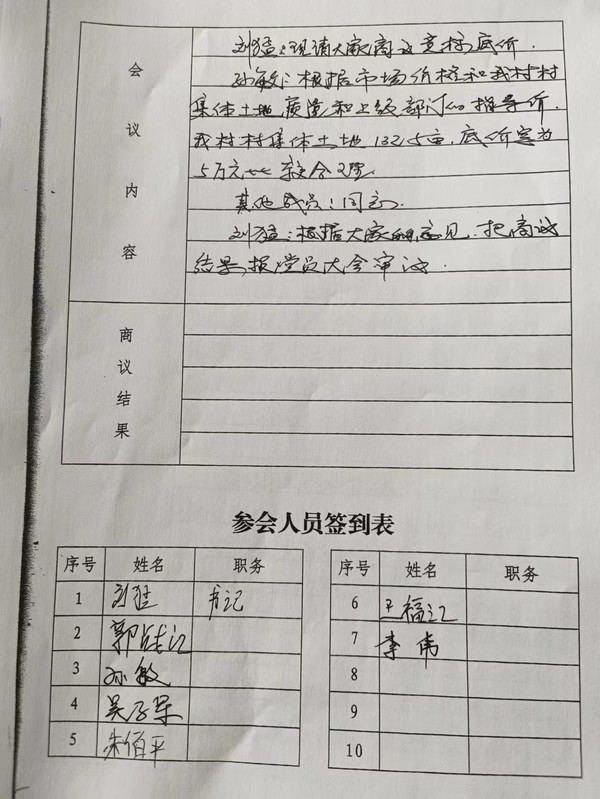 会议内容
刘猛：现请大家商议竞标底价.
孙敏：根据市场价格和我村村
集体土地质量和上级部门的指导价.
我村村集体土地132.5亩,底价定为
5万元 较合理.
其他成员：同意.
刘猛：根据大家的意见,把商议
结果,报党员大会审议.
商议结果
参会人员签到表
序号 姓名 职务
1 刘猛 书记
2 郭
3 孙敏
4 吴
5 朱佰平
序号 姓名 职务
6 王福江
7 李伟
8
9
10